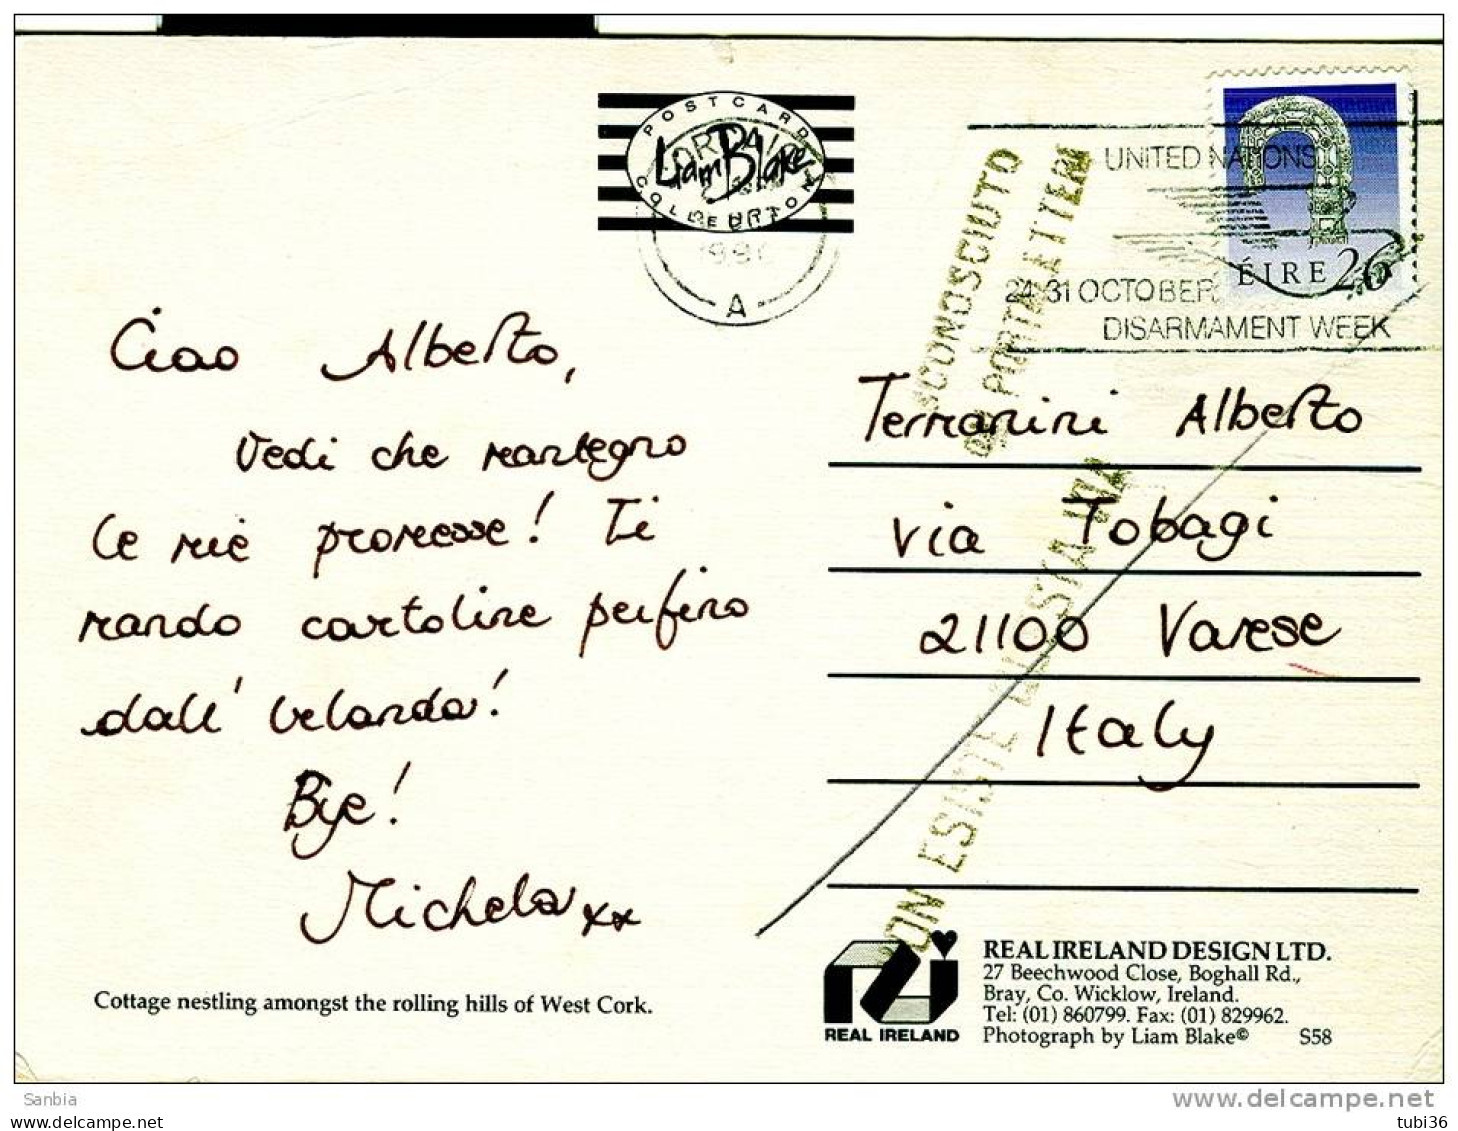 POSTCARD
Liam Blake
COLLECTION
A
UNITED NATIONS
24-31 OCTOBER
DISARMAMENT WEEK
ÉIRE 26
SCONOSCIUTO
PORTALETTERE
NON ESISTE QUESTA VIA
Ciao Alberto,
Vedi che mantegno
le mie promesse! Ti
mando cartoline perfino
dall' Irlanda!
Bye!
Michela xx
Terranini Alberto
via Tobagi
21100 Varese
Italy
Cottage nestling amongst the rolling hills of West Cork.
REAL IRELAND
REAL IRELAND DESIGN LTD.
27 Beechwood Close, Boghall Rd.,
Bray, Co. Wicklow, Ireland.
Tel: (01) 860799. Fax: (01) 829962.
Photograph by Liam Blake© S58
Sanbia
www.delcampe.net
tubi36